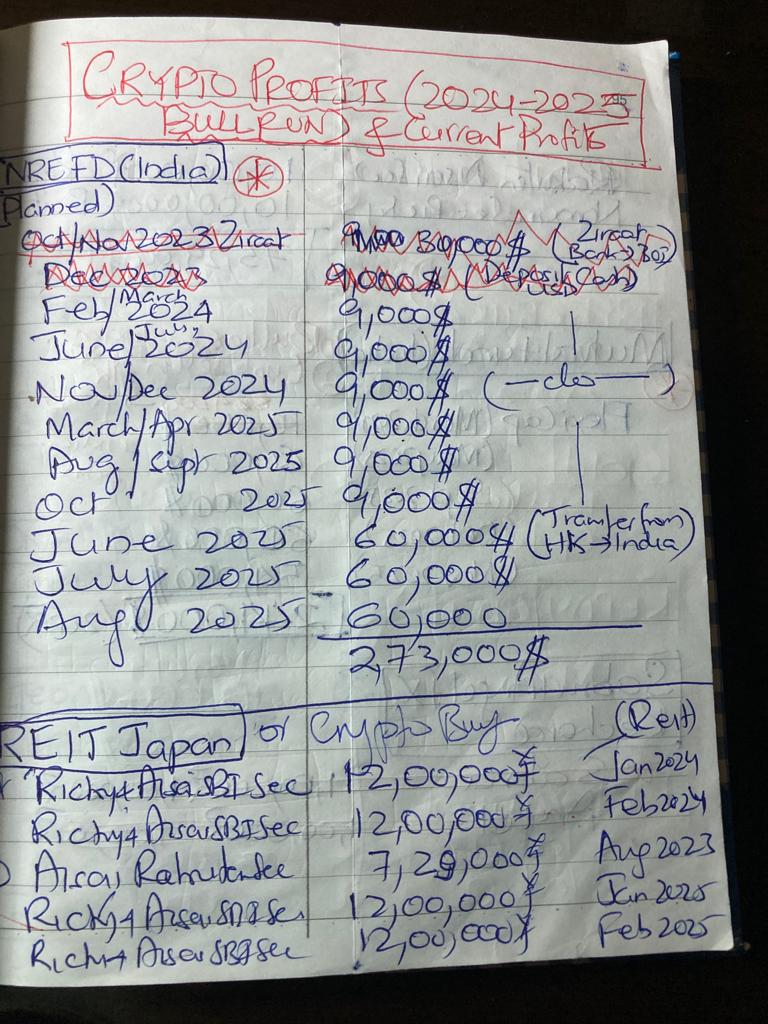 CRYPTO PROFITS (2024-2025
BULLRUN) & Current Profits
NRE FD (India)
(Planned)
Oct/Nov 2023 Zircat 30,000$ (Zircat
Dec 2023 9,000$ (Deposit Cash) USD
Feb/March 2024 9,000$
June/July 2024 9,000$
Nov/Dec 2024 9,000$ (—do—)
March/Apr 2025 9,000$
Aug/Sept 2025 9,000$
Oct 2025 9,000$
June 2025 60,000$ (Transfer from
HK→India)
July 2025 60,000$
Aug 2025 60,000
2,73,000$
REIT Japan or Crypto Buy (Reit)
Ricky+ SBI Sec 12,00,000¥ Jan 2024
Ricky+ SBI Sec 12,00,000¥ Feb 2024
7,29,000¥ Aug 2023
Ricky+ 12,00,000¥ Jan 2025
Ricky+ SBI Sec 12,00,000¥ Feb 2025